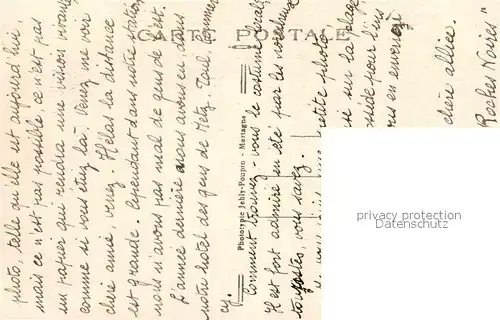 CARTE POSTALE
photo, telle qu'elle est aujourd'hui,
mais ce n'est pas possible ce n'est pas
un papier qui rendra une vision vivante
comme si vous étiez là. Venez me voir
chère amie, venez. Hélas la distance
est grande. Cependant dans notre station
nous n'avons pas mal de gens de l'est.
L'année dernière nous avons eu dans
notre hôtel des gens de Metz, Toul, Commer
cy.
Phototypie Jehly-Poupin - Mortagne
Comment trouvez-vous le costume local?
Il est fort admiré en été par les
touristes, vous savez.
petite photo
sur la plage
possède pour l'ins
vous en enverrai
chère alliée.
Roches Noires"
privacy protection
oldthing.de